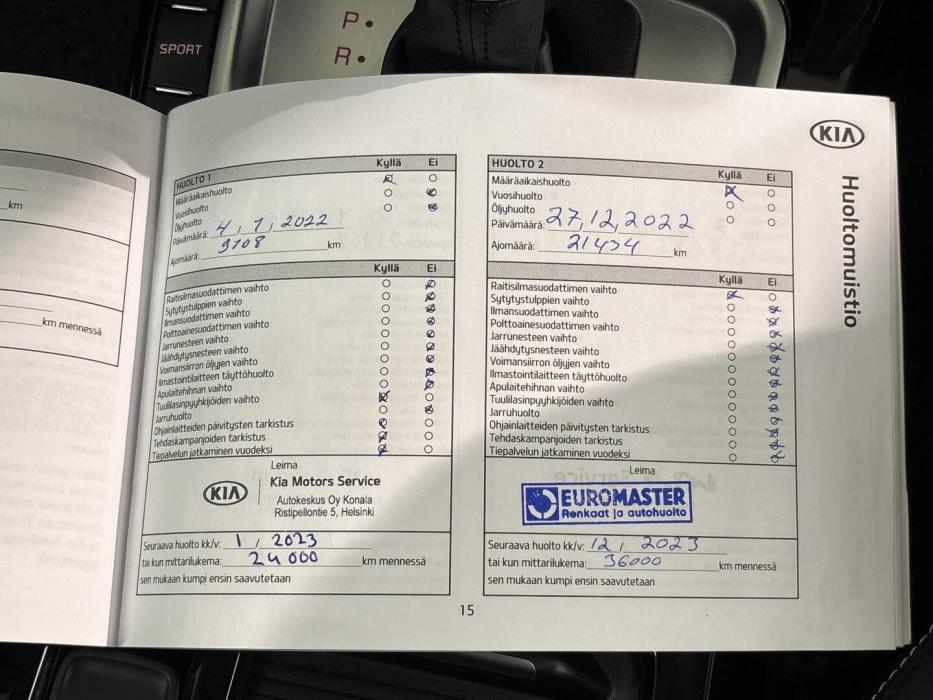 SPORT
P
R
km
km mennessä
KIA
Huoltomuistio
HUOLTO 1
Kyllä Ei
Määräaikaishuolto
Vuosihuolto
Öljyhuolto
Päivämäärä: 4, 1, 2022
Ajomäärä: 9708 km
Kyllä Ei
Raitisilmasuodattimen vaihto
Sytytystulppien vaihto
Ilmansuodattimen vaihto
Polttoainesuodattimen vaihto
Jarrunesteen vaihto
Jäähdytysnesteen vaihto
Voimansiirron öljyjen vaihto
Ilmastointilaitteen täyttöhuolto
Apulaitehihnan vaihto
Tuulilasinpyyhkijöiden vaihto
Jarruhuolto
Ohjainlaitteiden päivitysten tarkistus
Tehdaskampanjoiden tarkistus
Tiepalvelun jatkaminen vuodeksi
Leima
KIA
Kia Motors Service
Autokeskus Oy Konala
Ristipellontie 5, Helsinki
Seuraava huolto kk/v: 1, 2023
tai kun mittarilukema: 24 000 km mennessä
sen mukaan kumpi ensin saavutetaan
HUOLTO 2
Kyllä Ei
Määräaikaishuolto
Vuosihuolto
Öljyhuolto
Päivämäärä: 27, 12, 2022
Ajomäärä: 21434 km
Kyllä Ei
Raitisilmasuodattimen vaihto
Sytytystulppien vaihto
Ilmansuodattimen vaihto
Polttoainesuodattimen vaihto
Jarrunesteen vaihto
Jäähdytysnesteen vaihto
Voimansiirron öljyjen vaihto
Ilmastointilaitteen täyttöhuolto
Apulaitehihnan vaihto
Tuulilasinpyyhkijöiden vaihto
Jarruhuolto
Ohjainlaitteiden päivitysten tarkistus
Tehdaskampanjoiden tarkistus
Tiepalvelun jatkaminen vuodeksi
Leima
EUROMASTER
Renkaat ja autohuolto
Seuraava huolto kk/v: 12, 2023
tai kun mittarilukema: 36000 km mennessä
sen mukaan kumpi ensin saavutetaan
15